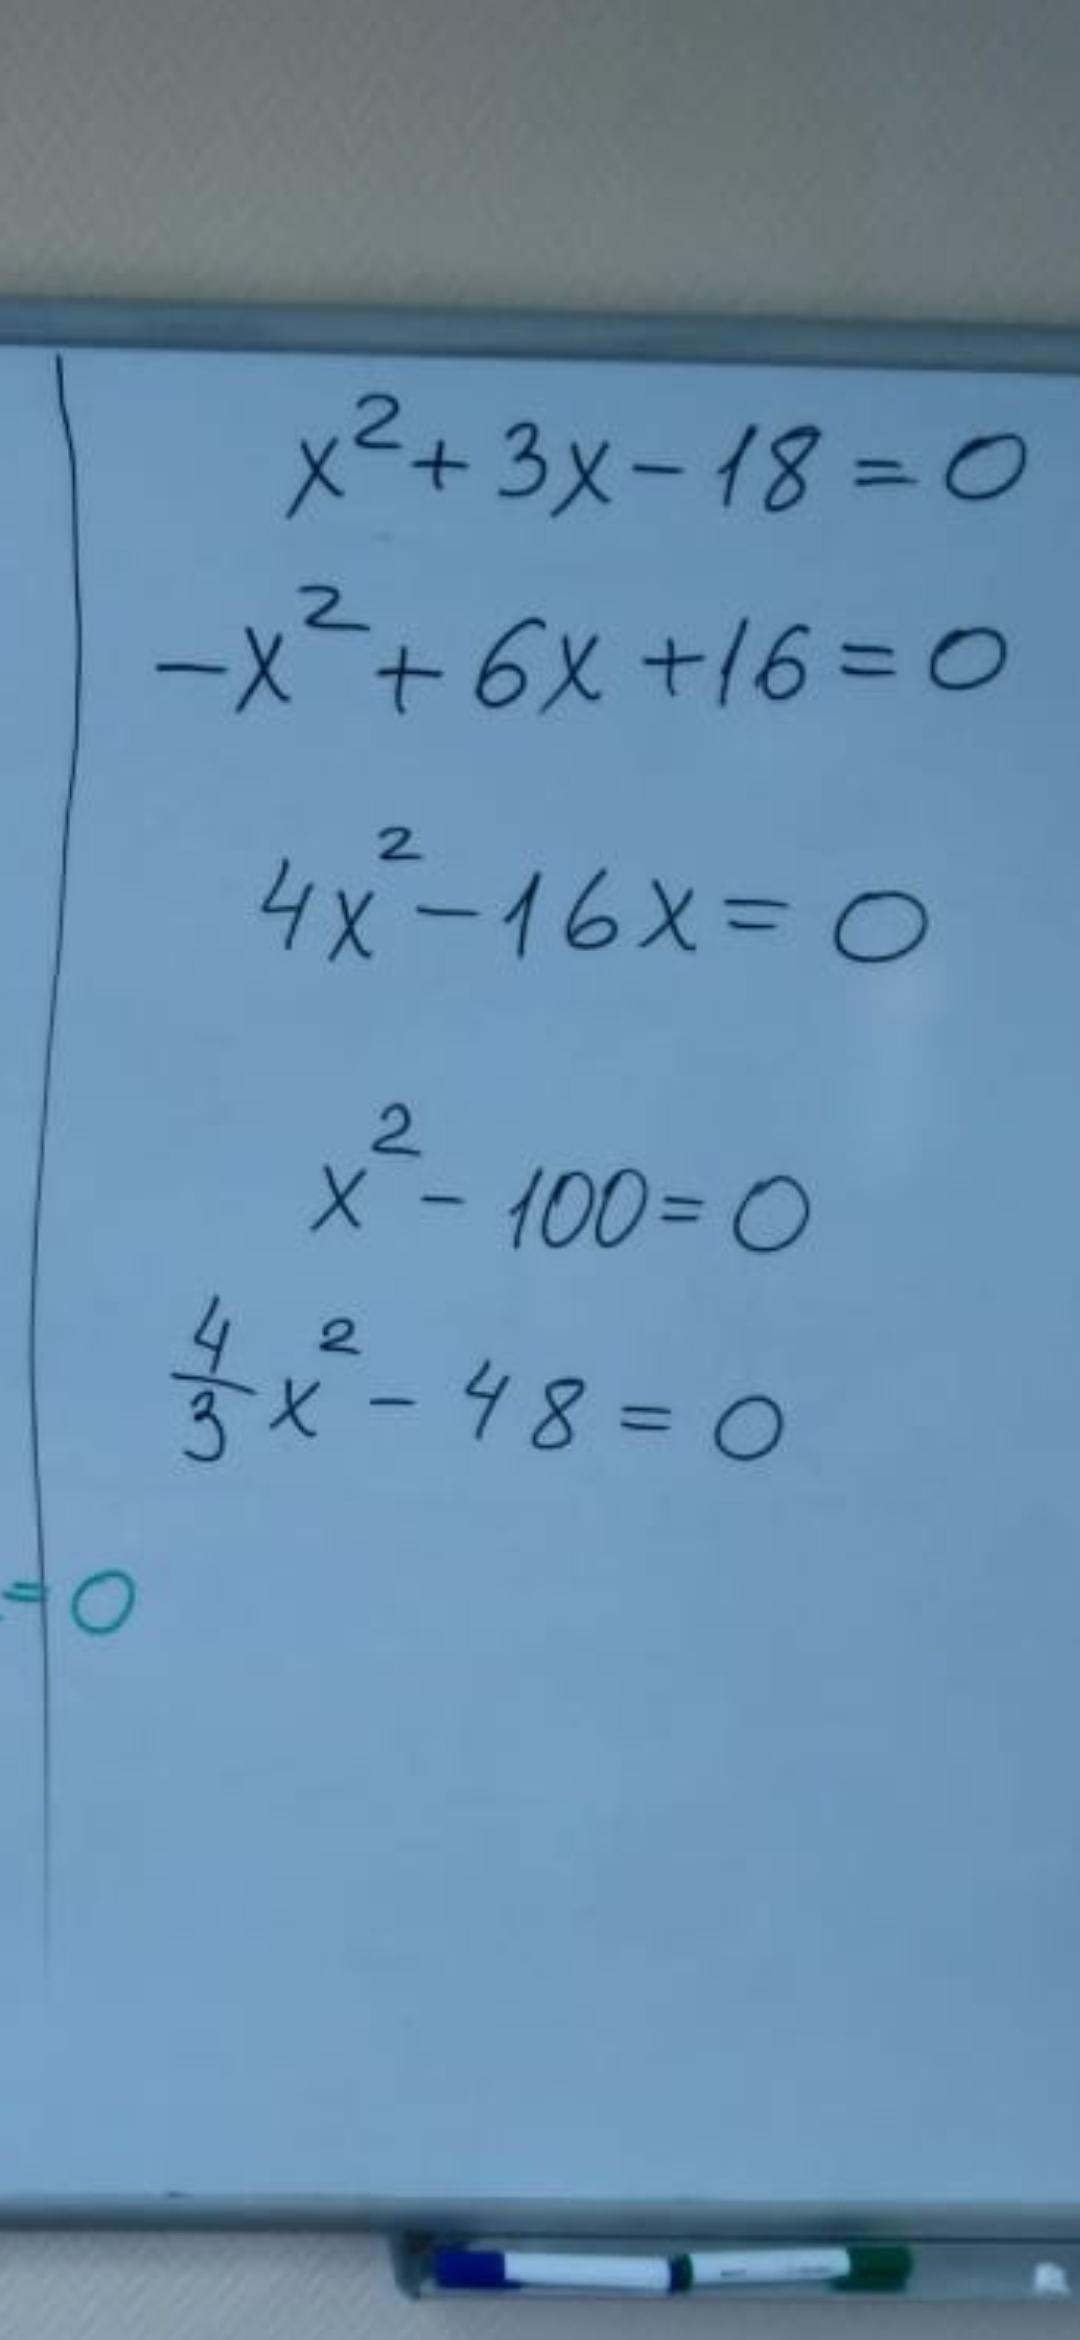 x² + 3x - 18 = 0
-x² + 6x + 16 = 0
4x² - 16x = 0
x² - 100 = 0
4/3 x² - 48 = 0
= 0